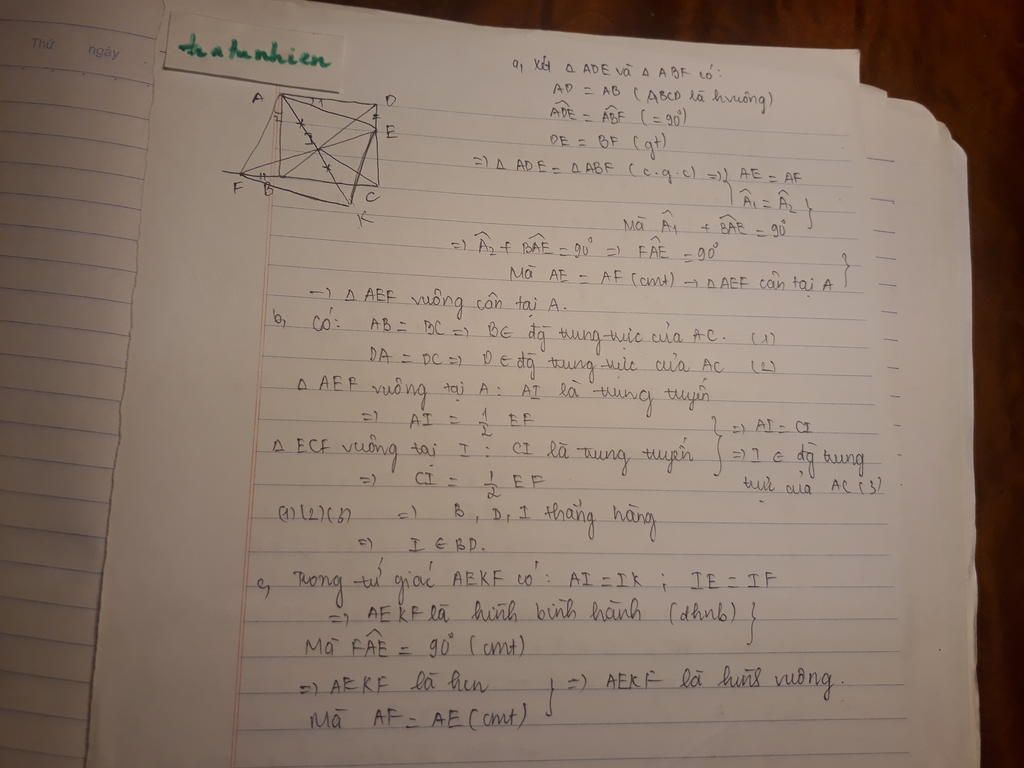 Thứ ngày
tratunhien
A D
E
F B C
K
a, Xét △ ADE và △ ABF có:
AD = AB (ABCD là hvuông)
ADE = ABF (= 90°)
DE = BF (gt)
=> △ ADE = △ ABF (c.g.c) => { AE = AF
Â₁ = Â₂ }
Mà Â₁ + BAE = 90°
=> Â₂ + BAE = 90° => FAE = 90°
Mà AE = AF (cmt) → △ AEF cân tại A }
→ △ AEF vuông cân tại A.
b, Có: AB = BC => B ∈ đg trung trực của AC. (1)
DA = DC => D ∈ đg trung trực của AC (2)
△ AEF vuông tại A : AI là trung tuyến
=> AI = 1/2 EF } => AI = CI
△ ECF vuông tại I : CI là trung tuyến => I ∈ đg trung
=> CI = 1/2 EF trực của AC (3)
(1) (2) (3) => B, D, I thẳng hàng
=> I ∈ BD.
c, Trong tứ giác AEKF có: AI = IK ; IE = IF
=> AEKF là hình bình hành (dhnb) }
Mà FAE = 90° (cmt)
=> AEKF là hcn } => AEKF là hình vuông.
Mà AF = AE (cmt)